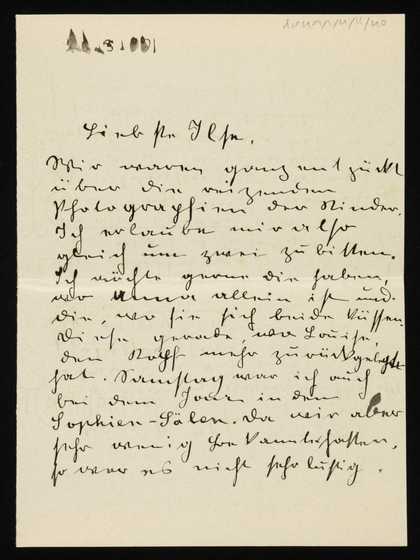 Liebste Ilse.
Wir waren ganz entzückt
über die reizenden
Photographien der Kinder.
Ich erlaube mir also
gleich um zwei zu bitten.
Ich möchte gerne die haben,
wo Anna allein ist und
die, wo sie sich beide küssen.
Diese gerade, wo Louise,
den Kopf mehr zurückgelegt
hat. Samstag war ich auch
bei dem in dem
Sophien-Sälen. Da wir aber
sehr wenig Bekannte hatten,
so war es nicht sehr lustig.